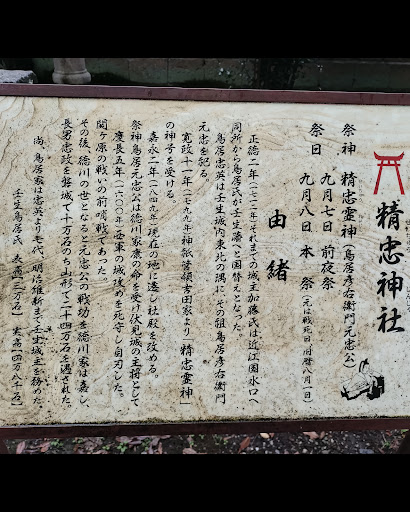 精忠神社
祭神　精忠霊神（鳥居彦右衛門元忠公）
祭日　九月七日　前夜祭
九月八日　本　祭（元は戦死日・旧暦八月一日）
由緒
正徳二年（一七一二年）それまでの城主加藤氏は近江国水口へ
同所から鳥居氏が壬生藩へと国替えとなった。
鳥居忠英は壬生城内東北の隅にその祖鳥居彦右衛門
元忠を祀る。
寛政十一年（一七九九年）神祇管領吉田家より「精忠霊神」
の神号を受ける。
嘉永二年（一八四九年）現在の地に遷し社殿を改める。
祭神鳥居元忠公は徳川家康の命を受け伏見城の主将として
慶長五年（一六〇〇年）西軍の城攻めを死守し自刃した。
関ヶ原の戦いの前哨戦であった。
その後、徳川の世となると元忠公の戦功を徳川家は嘉し、
長男忠政を磐城へ十万石のち山形へ二十四万石を遇された。
尚、鳥居家は忠英より七代、明治維新まで壬生城主を務めた。
壬生鳥居氏　表高【三万石】　実高【四万八千石】